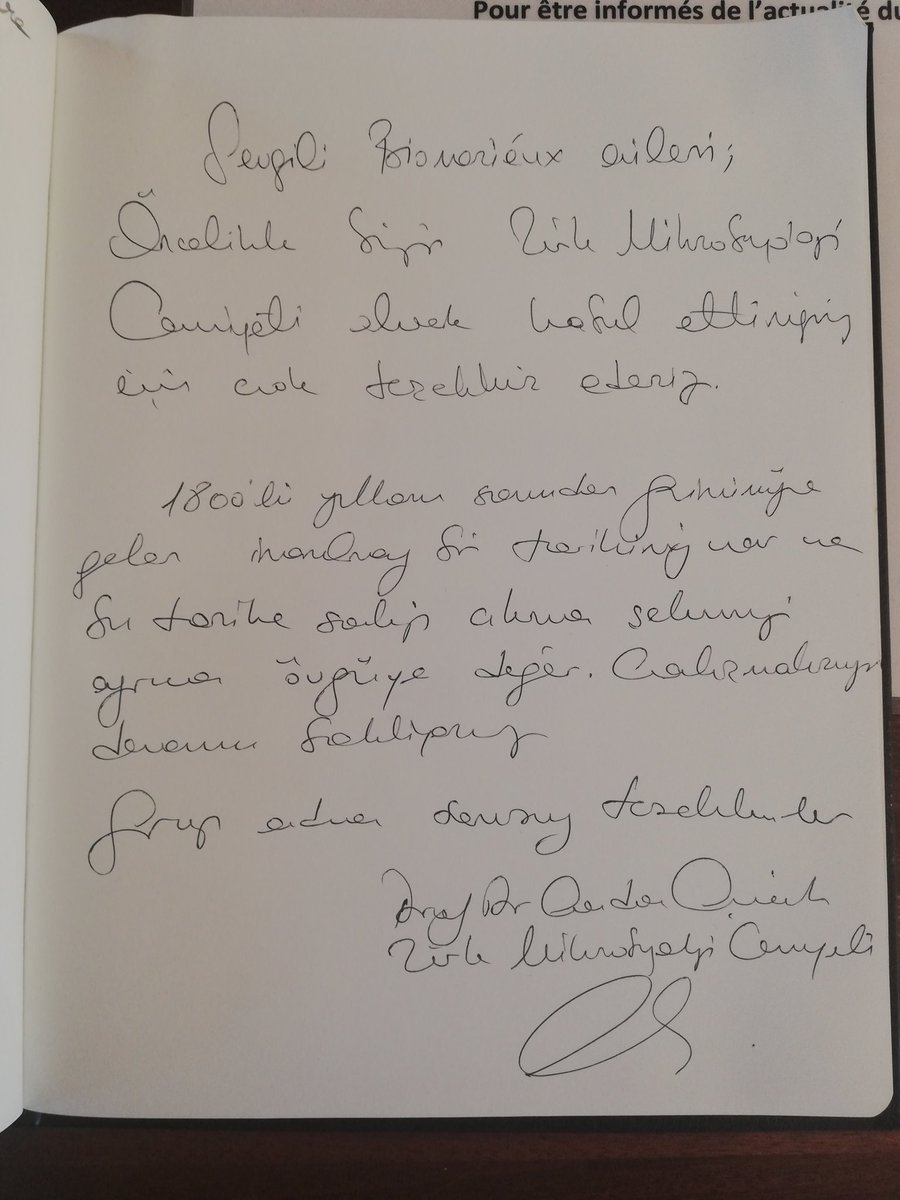 Pour être informés de l'actualité du
Sevgili Biomeriéux ailesi;
Öncelikle bizi Türk Mikrobiyoloji
Cemiyeti olarak kabul ettiğiniz
için çok teşekkür ederiz.
1800'lü yılların sonundan günümüze
gelen inanılmaz bir tarihiniz var ve
bu tarihe sahip çıkma şekliniz
ayrıca övgüye değer. Çalışmalarınızın
devamını bekliyoruz
Grup adına sonsuz teşekkürler
Prof Dr
Türk Mikrobiyoloji Cemiyeti